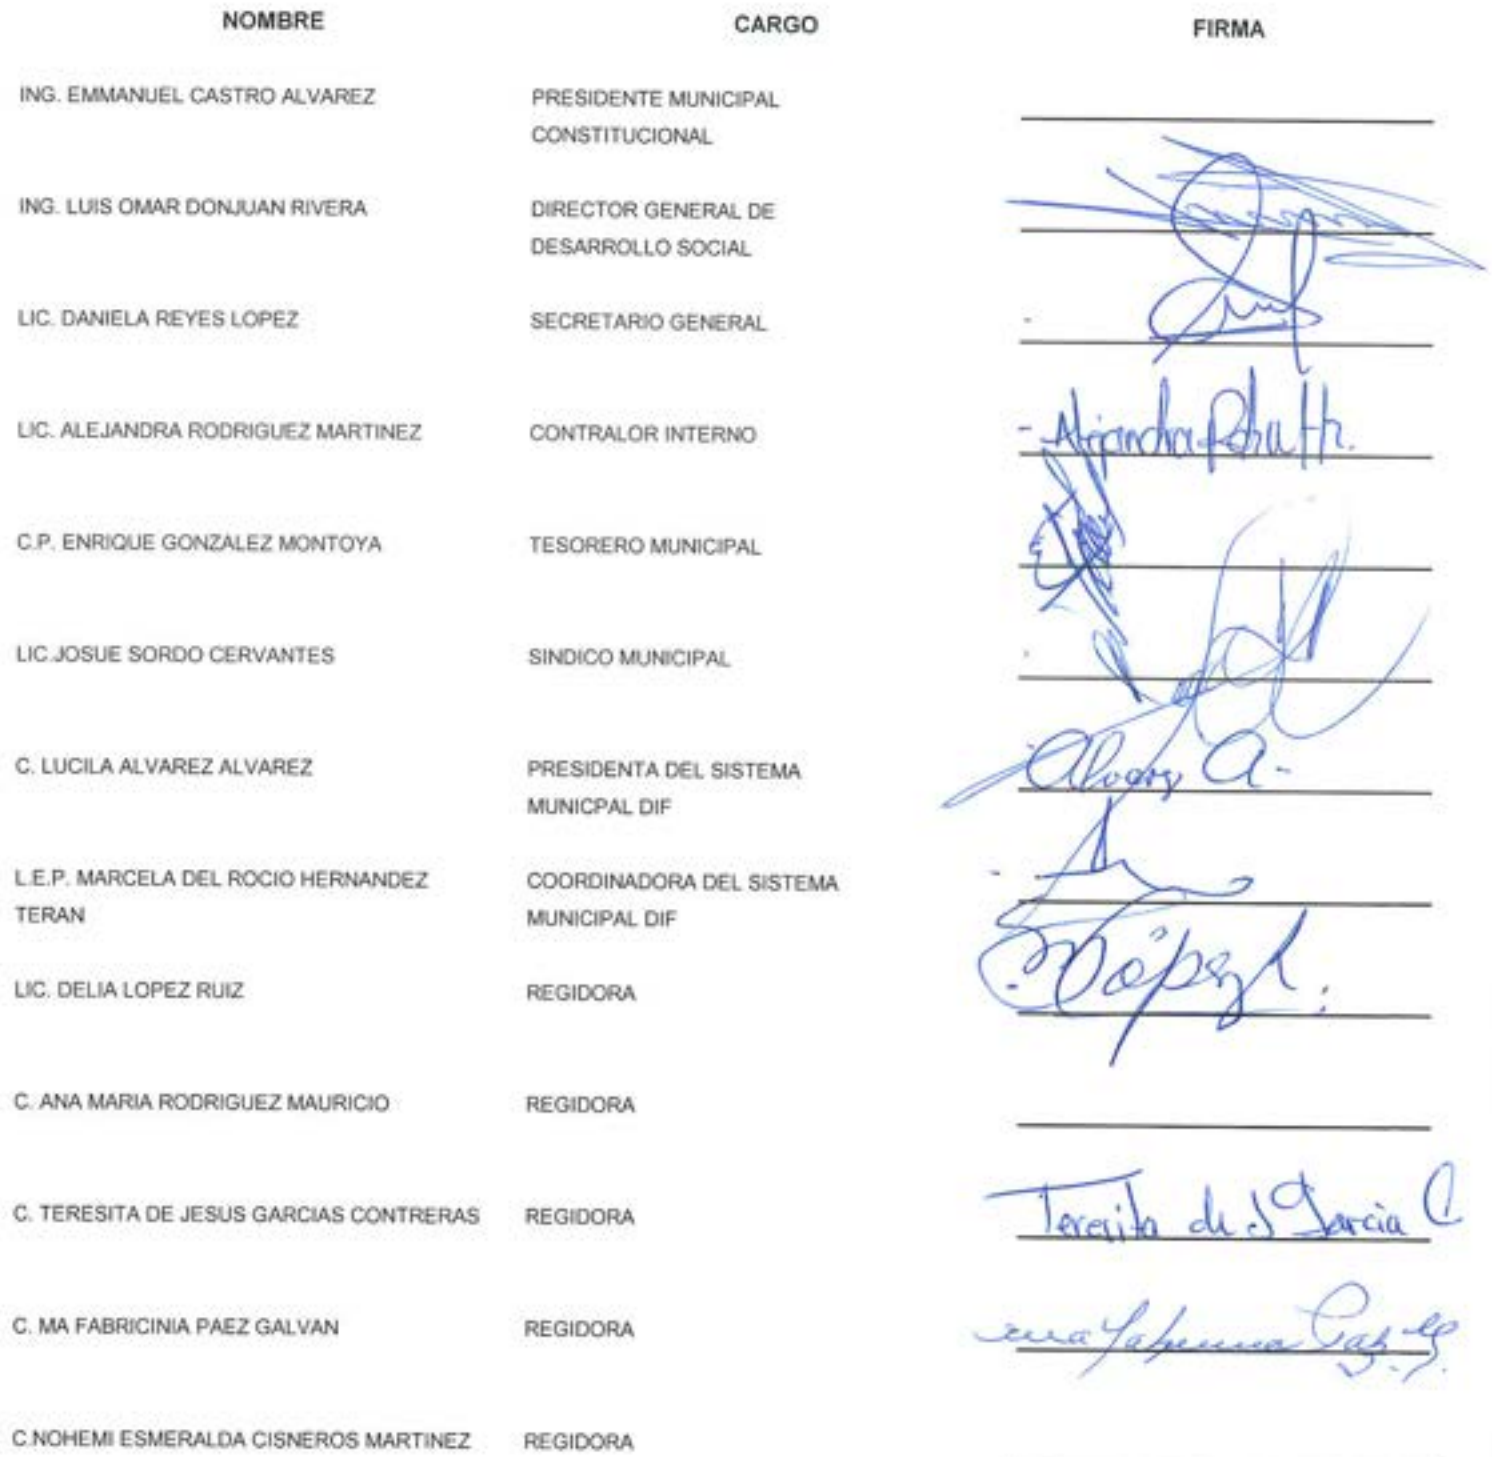 NOMBRE CARGO FIRMA
ING. EMMANUEL CASTRO ALVAREZ PRESIDENTE MUNICIPAL
CONSTITUCIONAL
ING. LUIS OMAR DONJUAN RIVERA DIRECTOR GENERAL DE
DESARROLLO SOCIAL
LIC. DANIELA REYES LOPEZ SECRETARIO GENERAL
LIC. ALEJANDRA RODRIGUEZ MARTINEZ CONTRALOR INTERNO
Alejandra
C.P. ENRIQUE GONZALEZ MONTOYA TESORERO MUNICIPAL
LIC.JOSUE SORDO CERVANTES SINDICO MUNICIPAL
C. LUCILA ALVAREZ ALVAREZ PRESIDENTA DEL SISTEMA
MUNICPAL DIF
L.E.P. MARCELA DEL ROCIO HERNANDEZ COORDINADORA DEL SISTEMA
TERAN MUNICIPAL DIF
LIC. DELIA LOPEZ RUIZ REGIDORA
C. ANA MARIA RODRIGUEZ MAURICIO REGIDORA
C. TERESITA DE JESUS GARCIAS CONTRERAS REGIDORA Teresita de J Garcia C
C. MA FABRICINIA PAEZ GALVAN REGIDORA
C.NOHEMI ESMERALDA CISNEROS MARTINEZ REGIDORA